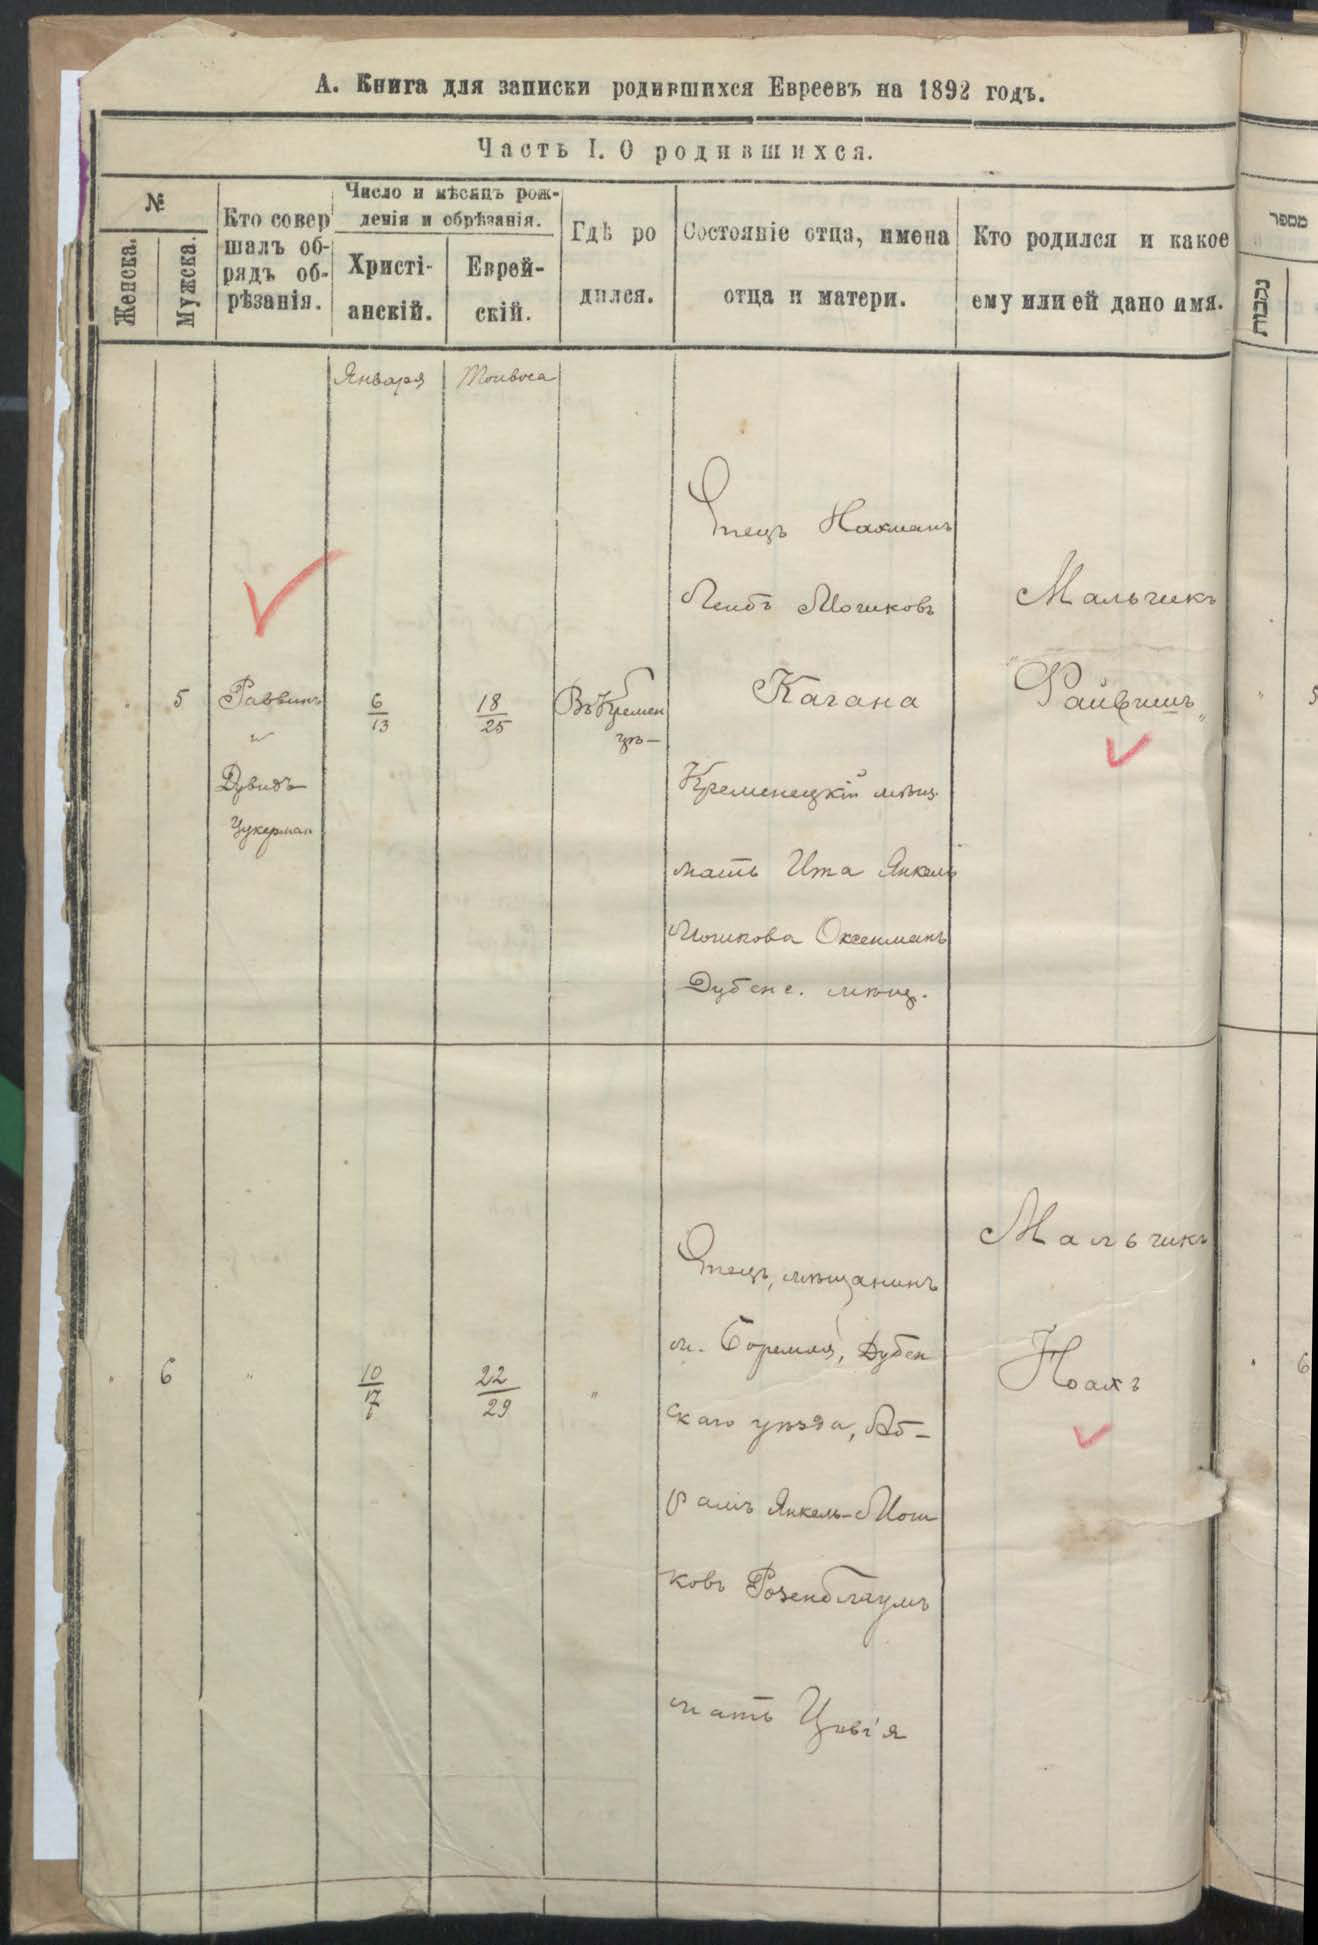 А. Книга для записки родившихся Евреевъ на 1892 годъ.
Часть I. О родившихся.
№
Женска.
Мужска.
Кто совер
шалъ об-
рядъ об-
рѣзанія.
Число и мѣсяцъ рож-
денія и обрѣзанія.
Христі-
анскій.
Еврей-
скій.
Гдѣ ро
дился.
Состояніе отца, имена
отца и матери.
Кто родился и какое
ему или ей дано имя.
Января
Тойвоса
5
Раввинъ
и
Дувидъ
Цукерман
6
13
18
25
Въ Кремен
цѣ—
Отецъ Нахманъ
Лейбъ Мошковъ
Кагана
Кременецкій мѣщ.
мать Ита Янкель
Мошкова Оксенманъ
Дубенс. мѣщ.
Мальчикъ
"Файвишъ„
6
"
10
17
22
29
"
Отецъ, мѣщанинъ
м. Боремля, Дубен
скаго уѣзда, Аб-
рамъ Янкель-Мош
ковъ Розенблаумъ
мать Цивія
Мальчикъ
Ноахъ
מספר
נקבות
"
5
6